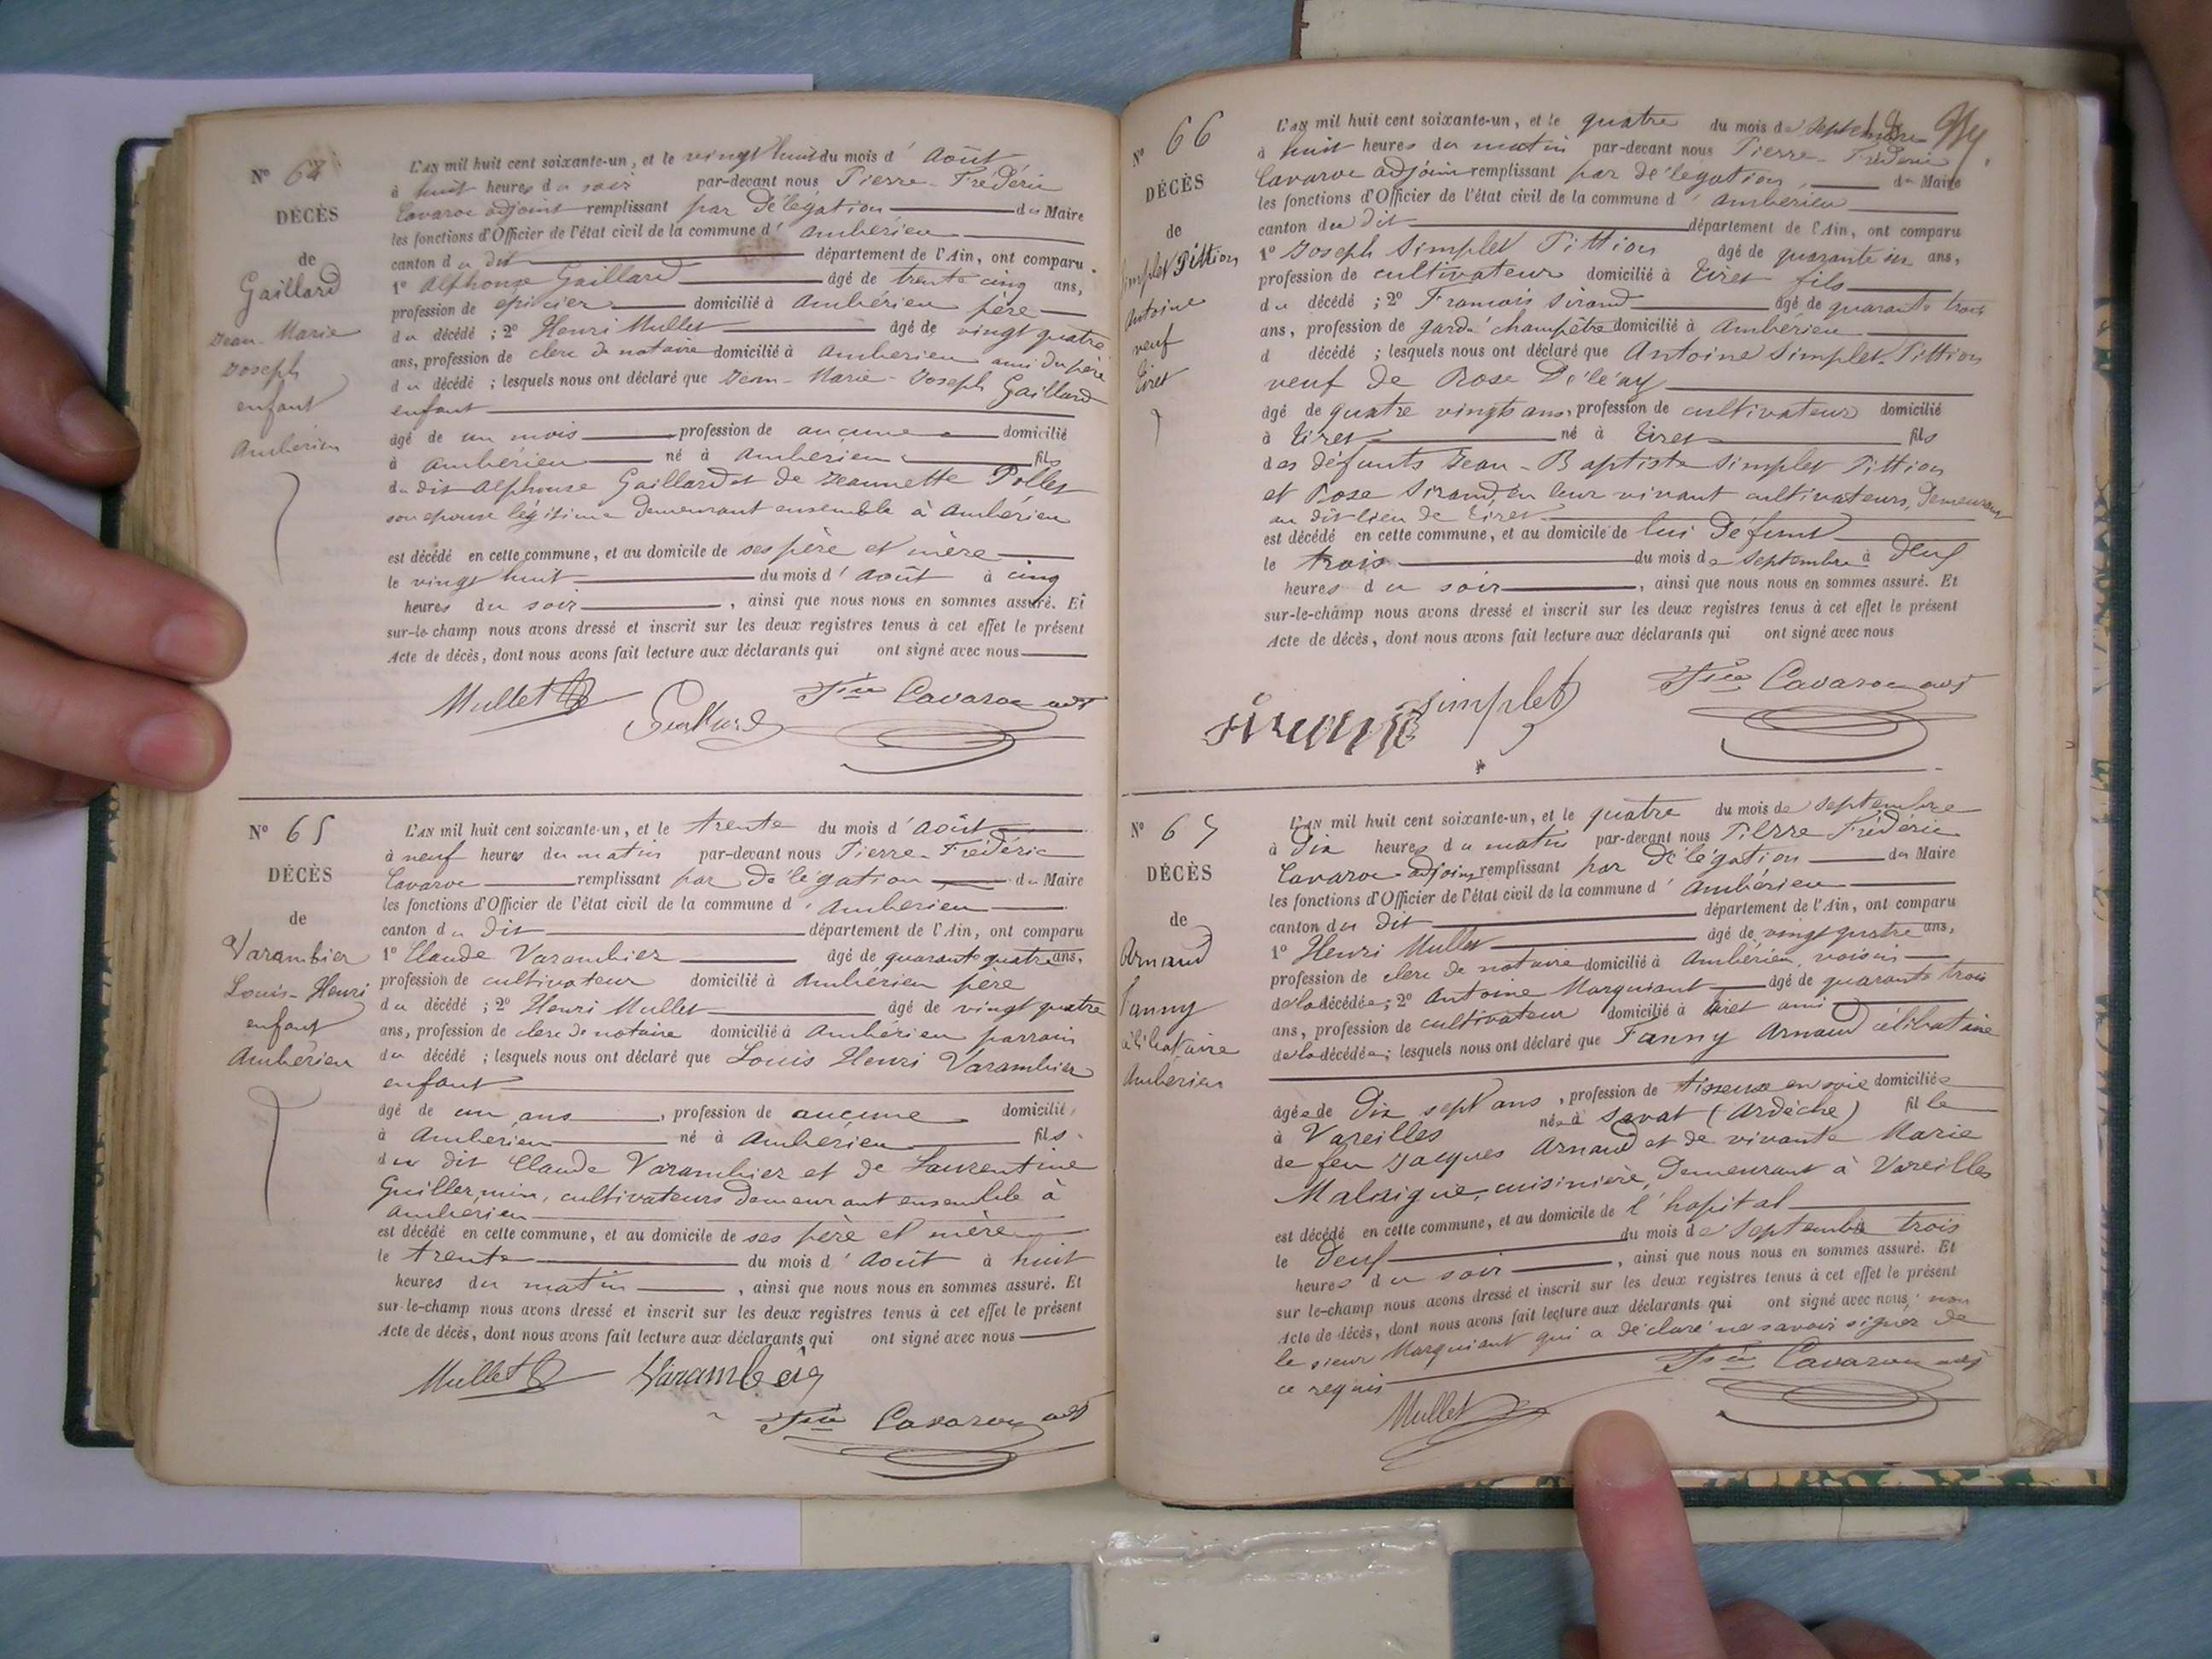 N° 64
DÉCÈS
de
Gaillard
Jean-Marie
Joseph
enfant
Ambérieu
L'AN mil huit cent soixante-un, et le vingt huit du mois d'Août
à huit heures du soir par-devant nous Pierre-Frédéric
Cavaroc adjoint remplissant par délégation du Maire
les fonctions d'Officier de l'état civil de la commune d'Ambérieu
canton du dit département de l'Ain, ont comparu
1° Alphonse Gaillard âgé de trente cinq ans,
profession de epicier domicilié à Ambérieu père
du décédé ; 2° Henri Mullet âgé de vingt quatre
ans, profession de clerc de notaire domicilié à Ambérieu ami du père
du décédé ; lesquels nous ont déclaré que Jean-Marie-Joseph Gaillard
enfant
âgé de un mois profession de aucune domicilié
à Ambérieu né à Ambérieu fils
du dit Alphonse Gaillard et de Jeannette Pollet
son epouse légitime demeurant ensemble à Ambérieu
est décédé en cette commune, et au domicile de ses père et mère
le vingt huit du mois d'Août à cinq
heures du soir, ainsi que nous nous en sommes assuré. Et
sur-le-champ nous avons dressé et inscrit sur les deux registres tenus à cet effet le présent
Acte de décès, dont nous avons fait lecture aux déclarants qui ont signé avec nous
Mullet Gaillard Fric Cavaroc adj
N° 65
DÉCÈS
de
Varambier
Louis-Henri
enfant
Ambérieu
L'AN mil huit cent soixante-un, et le trente du mois d'Août
à neuf heures du matin par-devant nous Pierre-Frédéric
Cavaroc remplissant par délégation du Maire
les fonctions d'Officier de l'état civil de la commune d'Ambérieu
canton du dit département de l'Ain, ont comparu
1° Claude Varambier âgé de quarante quatre ans,
profession de cultivateur domicilié à Ambérieu père
du décédé ; 2° Henri Mullet âgé de vingt quatre
ans, profession de clerc de notaire domicilié à Ambérieu parrain
du décédé ; lesquels nous ont déclaré que Louis Henri Varambier
enfant
âgé de un ans, profession de aucune domicilié
à Ambérieu né à Ambérieu fils
du dit Claude Varambier et de Laurentine
Guillermin, cultivateurs demeurant ensemble à
Ambérieu
est décédé en cette commune, et au domicile de ses père et mère
le trente du mois d'Août à huit
heures du matin, ainsi que nous nous en sommes assuré. Et
sur-le-champ nous avons dressé et inscrit sur les deux registres tenus à cet effet le présent
Acte de décès, dont nous avons fait lecture aux déclarants qui ont signé avec nous
Mullet
Fric Cavaroc adj
N° 66
DÉCÈS
de
Simplet Pittion
Antoine
veuf
Tiret
L'AN mil huit cent soixante-un, et le quatre du mois de Septembre
à huit heures du matin par-devant nous Pierre-Frédéric
Cavaroc adjoint remplissant par délégation, du Maire
les fonctions d'Officier de l'état civil de la commune d'Ambérieu
canton du dit département de l'Ain, ont comparu
1° Joseph Simplet Pittion âgé de quarante six ans,
profession de cultivateur domicilié à Tiret fils
du décédé ; 2° Francois Sirand âgé de quarante trois
ans, profession de garde champêtre domicilié à Ambérieu
d décédé ; lesquels nous ont déclaré que Antoine Simplet-Pittion
veuf de Rose
âgé de quatre vingts ans, profession de cultivateur domicilié
à Tiret né à Tiret fils
des défunts Jean-Baptiste Simplet Pittion
et Rose Sirand, en leur vivant cultivateurs, demeurant
au dit lieu de Tiret
est décédé en cette commune, et au domicile de lui défunt
le trois du mois de Septembre à deux
heures du soir, ainsi que nous nous en sommes assuré. Et
sur-le-champ nous avons dressé et inscrit sur les deux registres tenus à cet effet le présent
Acte de décès, dont nous avons fait lecture aux déclarants qui ont signé avec nous
Sirand Simplet Fric Cavaroc adj
N° 67
DÉCÈS
de
Arnaud
Fanny
célibataire
Ambérieu
L'AN mil huit cent soixante-un, et le quatre du mois de Septembre
à dix heures du matin par-devant nous Pierre Frédéric
Cavaroc adjoint remplissant par délégation du Maire
les fonctions d'Officier de l'état civil de la commune d'Ambérieu
canton du dit département de l'Ain, ont comparu
1° Henri Mullet âgé de vingt quatre ans,
profession de clerc de notaire domicilié à Ambérieu, voisin
de la décédée ; 2° Antoine Marquiant âgé de quarante trois
ans, profession de cultivateur domicilié à Tiret ami
de la décédée ; lesquels nous ont déclaré que Fanny Arnaud célibataire
âgée de dix sept ans, profession de tisseuse en soie domiciliée
à Vareilles née à Savat (Ardèche) fille
de feu Jacques Arnaud et de vivante Marie
cuisinière, demeurant à Vareilles
est décédé en cette commune, et au domicile de l'hopital
le deux du mois de Septembre trois
heures du soir, ainsi que nous nous en sommes assuré. Et
sur le-champ nous avons dressé et inscrit sur les deux registres tenus à cet effet le présent
Acte de décès, dont nous avons fait lecture aux déclarants qui ont signé avec nous, non
le sieur Marquiant qui a déclaré ne savoir signer de
ce requis
Mullet Fric Cavaroc adj